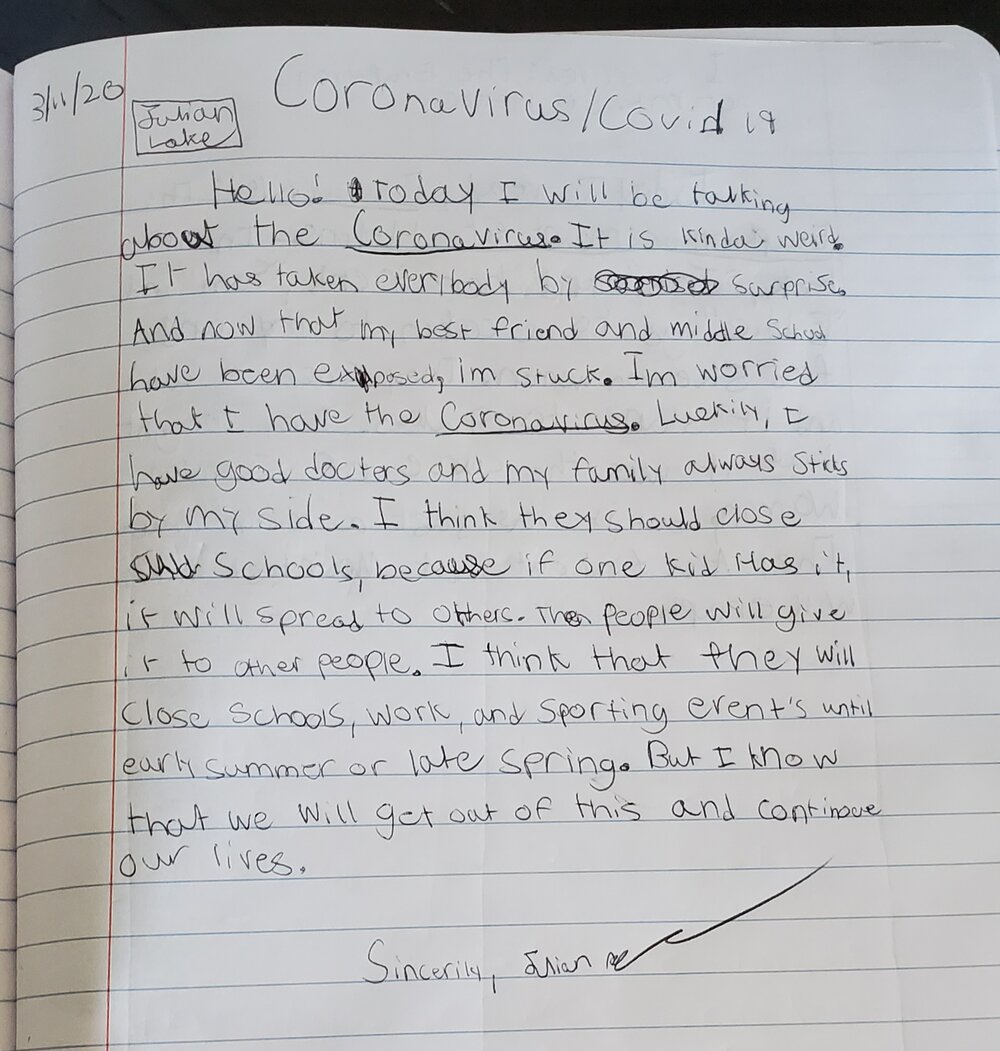 3/11/20
Julian
Lake
Coronavirus/Covid 19
Hello! Today I will be talking
about the Coronavirus. It is kinda weird.
It has taken everybody by surprise.
And now that my best friend and middle School
have been exposed, im stuck. Im worried
that I have the Coronavirus. Luckily, I
have good docters and my family always sticks
by my side. I think they should close
Schools, because if one kid Has it,
it will spread to others. Then people will give
it to other people. I think that they will
Close Schools, work, and sporting event's until
early summer or late spring. But I know
that we will get out of this and continove
our lives.
Sincerily, Julian